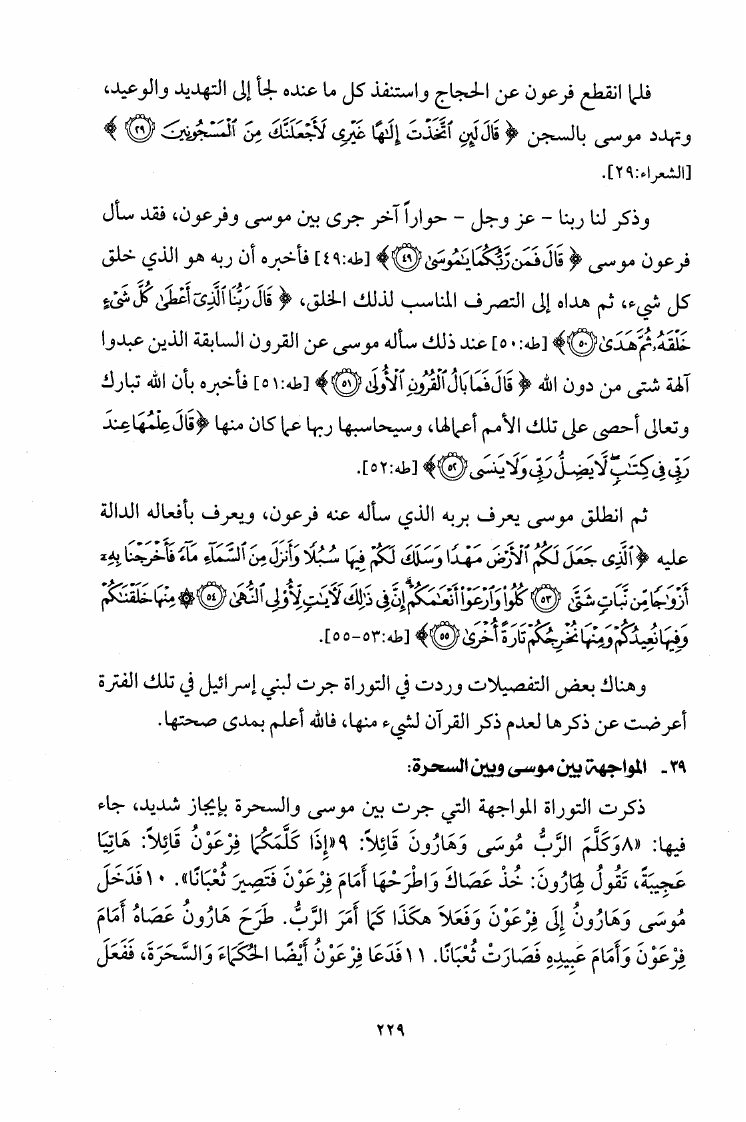 فلما انقطع فرعون عن الحجاج واستنفذ كل ما عنده لجأ إلى التهديد والوعيد،
وتهدد موسى بالسجن ﴿ قَالَ لَئِنِ ٱتَّخَذْتَ إِلَٰهًا غَيْرِى لَأَجْعَلَنَّكَ مِنَ ٱلْمَسْجُونِينَ ٢٩ ﴾
[الشعراء:٢٩].
وذكر لنا ربنا – عز وجل – حواراً آخر جرى بين موسى وفرعون، فقد سأل
فرعون موسى ﴿ قَالَ فَمَن رَّبُّكُمَا يَٰمُوسَىٰ ٤٩ ﴾ [طه:٤٩] فأخبره أن ربه هو الذي خلق
كل شيء، ثم هداه إلى التصرف المناسب لذلك الخلق، ﴿ قَالَ رَبُّنَا ٱلَّذِىٓ أَعْطَىٰ كُلَّ شَىْءٍ
خَلْقَهُۥ ثُمَّ هَدَىٰ ٥٠ ﴾ [طه:٥٠] عند ذلك سأله موسى عن القرون السابقة الذين عبدوا
آلهة شتى من دون الله ﴿ قَالَ فَمَا بَالُ ٱلْقُرُونِ ٱلْأُولَىٰ ٥١ ﴾ [طه:٥١] فأخبره بأن الله تبارك
وتعالى أحصى على تلك الأمم أعمالها، وسيحاسبها ربها عما كان منها ﴿ قَالَ عِلْمُهَا عِندَ
رَبِّى فِى كِتَٰبٍ ۖ لَّا يَضِلُّ رَبِّى وَلَا يَنسَى ٥٢ ﴾ [طه:٥٢].
ثم انطلق موسى يعرف بربه الذي سأله عنه فرعون، ويعرف بأفعاله الدالة
عليه ﴿ ٱلَّذِى جَعَلَ لَكُمُ ٱلْأَرْضَ مَهْدًا وَسَلَكَ لَكُمْ فِيهَا سُبُلًا وَأَنزَلَ مِنَ ٱلسَّمَآءِ مَآءً فَأَخْرَجْنَا بِهِۦٓ
أَزْوَٰجًا مِّن نَّبَاتٍ شَتَّىٰ ٥٣ كُلُوا۟ وَٱرْعَوْا۟ أَنْعَٰمَكُمْ ۗ إِنَّ فِى ذَٰلِكَ لَءَايَٰتٍ لِّأُو۟لِى ٱلنُّهَىٰ ٥٤ ۞ مِنْهَا خَلَقْنَٰكُمْ
وَفِيهَا نُعِيدُكُمْ وَمِنْهَا نُخْرِجُكُمْ تَارَةً أُخْرَىٰ ٥٥ ﴾ [طه:٥٣-٥٥].
وهناك بعض التفصيلات وردت في التوراة جرت لبني إسرائيل في تلك الفترة
أعرضت عن ذكرها لعدم ذكر القرآن لشيء منها، فالله أعلم بمدى صحتها.
٣٩- المواجهة بين موسى وبين السحرة:
ذكرت التوراة المواجهة التي جرت بين موسى والسحرة بإيجاز شديد، جاء
فيها: «٨وَكَلَّمَ الرَّبُّ مُوسَى وَهَارُونَ قَائِلاً: ٩«إِذَا كَلَّمَكُمَا فِرْعَوْنُ قَائِلاً: هَاتِيَا
عَجِيبَةً، تَقُولُ لِهَارُونَ: خُذْ عَصَاكَ وَاطْرَحْهَا أَمَامَ فِرْعَوْنَ فَتَصِيرَ ثُعْبَانًا». ١٠فَدَخَلَ
مُوسَى وَهَارُونُ إِلَى فِرْعَوْنَ وَفَعَلاَ هكَذَا كَمَا أَمَرَ الرَّبُّ. طَرَحَ هَارُونُ عَصَاهُ أَمَامَ
فِرْعَوْنَ وَأَمَامَ عَبِيدِهِ فَصَارَتْ ثُعْبَانًا. ١١فَدَعَا فِرْعَوْنُ أَيْضًا الْحُكَمَاءَ وَالسَّحَرَةَ، فَفَعَلَ
٢٢٩